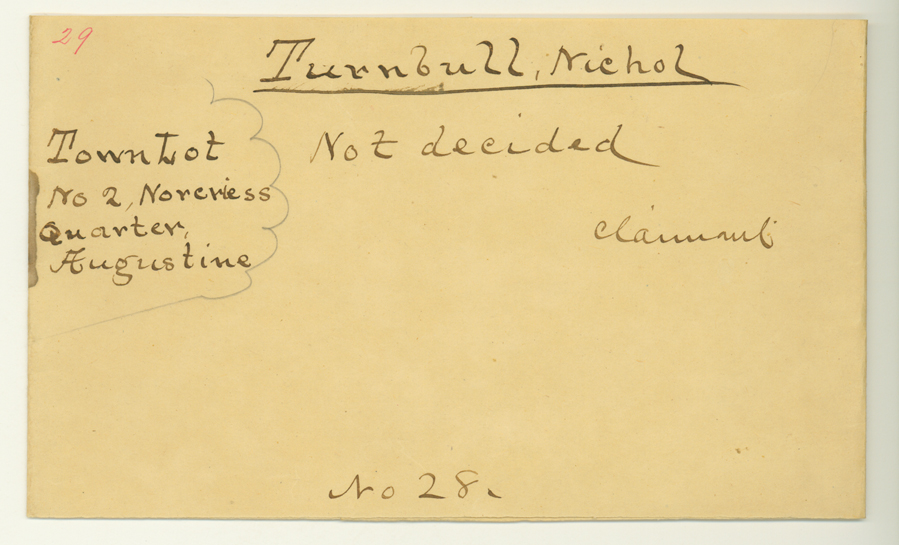 29
Turnbull, Nichol
Town Lot
No 2, Norcriess
Quarter,
Augustine
Not decided
Claimant
No 28.